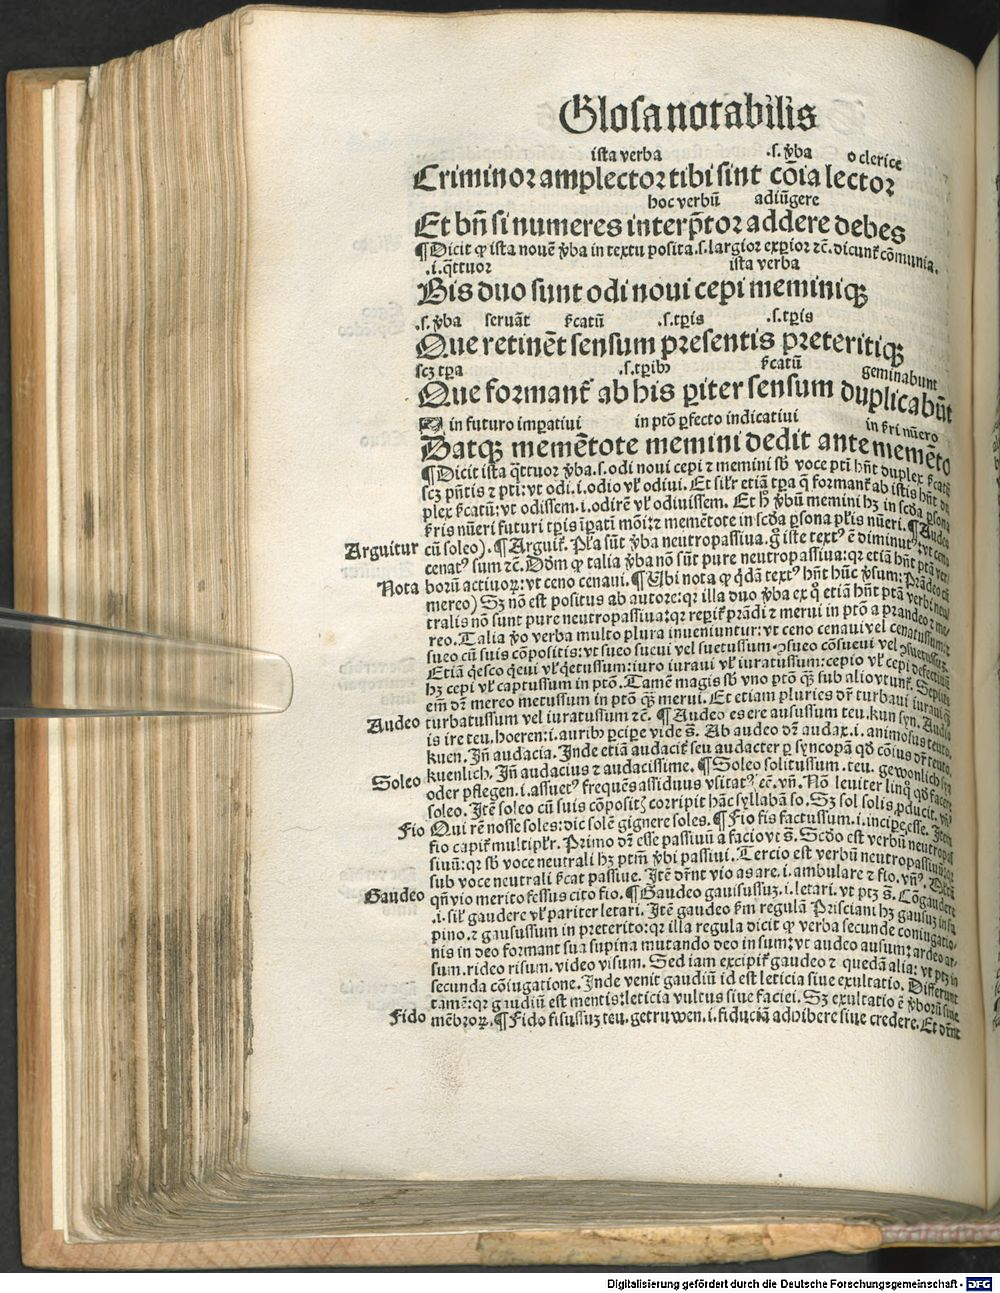 Glosa notabilis
ista verba .s. v̄ba o clerice
Criminor amplector tibi sint cōia lector
hoc verbū adiūgere
Et bn̄ si numeres interp̄tor addere debes
¶ Dicit ꝙ ista nouē v̄ba in textu posita .s. largior exꝑior ⁊c̄. dicunt᷑ cōmunia.
.i. q̄ttuor ista verba
Bis duo sunt odi noui cepi meminiqꝫ
.s. v̄ba seruāt s̄catū .s. tꝑis .s. tꝑis
Que retinēt sensum presentis preteritiqꝫ
scꝫ tꝑa .s. tꝑibꝰ s̄catū geminabunt
Que formant᷑ ab his ꝑiter sensum duplicabūt
in futuro imꝑatiui in ptō ꝑfecto indicatiui in
Datqꝫ memētote memini dedit ante memēto
¶ Dicit ista q̄ttuor v̄ba .s. odi noui cepi ⁊ memini sb̄ voce ptī hn̄t duplex s̄catū
scꝫ pn̄tis ⁊ ptī: vt odi .i. odio vl̓ odiui. Et sil̓r etiā tꝑa q̄ formant᷑ ab istis hn̄t du
plex s̄catū: vt odissem .i. odirē vl̓ odiuissem. Et h̄ v̄bū memini hꝫ in scd̄a ꝑsona
nūeri futuri tꝑis īꝑatī mōi: ⁊ memētote in scd̄a ꝑsona pl̓is nūeri. ¶ Audeo
Arguitur cū soleo). ¶ Arguit᷑. Pl̓a sūt v̄ba neutropassiua. g̊ iste textꝰ ē diminutꝰ: vt ceno
cenatꝰ sum ⁊c̄. Dōm ꝙ talia v̄ba nō sūt pure neutropassiua: qꝛ etiā hn̄t ptā ver
Nota borū actiuoꝝ: vt ceno cenaui. ¶ Ubi nota ꝙ q̄dā textꝰ hn̄t hūc v̄sum: Prādeo cū
mereo) Sꝫ nō est positus ab autore: qꝛ illa duo v̄ba ex q̊ etiā hn̄t ptā verbi neu
tralis nō sunt pure neutropassiua: qꝛ reꝑit᷑ prādi ⁊ merui in ptō a prandeo ⁊ me
reo. Talia v̊o verba multo plura inueniuntur: vt ceno cenaui vel cenatussum:
sueo cū suis cōpositis: vt sueo sueui vel suetussum. ꝯsueo cōsueui vel ꝯsuetussum.
Etiā q̄esco q̄eui vl̓ q̄etussum: iuro iuraui vl̓ iuratussum: cepio vl̓ cepi defectiuū
hꝫ cepi vl̓ captussum in ptō. Tamē magis sb̄ vno ptō qꝫ sub alio vtunt᷑.
em̄ dr̄ mereo metussum in ptō qꝫ merui. Et etiam pluries dr̄ turbaui iuraui qꝫ
Audeo turbatussum vel iuratussum ⁊c̄. ¶ Audeo es ere aususssum teu. kun syn. Audio
is ire teu. hoeren: i. auribꝰ ꝑcipe vide s̄. Ab audeo dr̄ audax .i. animosus teuto.
kuen. Jn̄ audacia. Jnde etiā audacit᷑ seu audacter ꝑ syncopā qd̄ cōius dr̄ teuto.
kuenlich. Jn̄ audacius ⁊ audacissime. ¶ Soleo solitussum. teu. gewonlich syn
Soleo oder pflegen .i. assuetꝰ frequēs assiduus vsitatꝰ ēē. vn̄. Nō leuiter linq̊ qd̄ facere
soleo. Jtē soleo cū suis cōpositꝫ corripit hāc syllabā so. Sꝫ sol solis ꝓducit. vn̄
Fio Qui rē nosse soles: dic solē gignere soles. ¶ Fio fis factussum .i. incipe esse. Jtem
fio capit᷑ multipl̓r. Primo dr̄ esse passiuū a facio vt s̄. Scd̄o est verbū neutropas
siuū: qꝛ sb̄ voce neutrali hꝫ ptm̄ v̄bi passiui. Tercio est verbū neutropassiuū: qꝛ
sub voce neutrali s̄cat passiue. Jtē dr̄nt vio as are .i. ambulare ⁊ fio. vn̄ꝰ.
Gaudeo qn̄ vio merito fessus cito fio. ¶ Gaudeo gauisussuꝫ .i. letari. vt ptꝫ s̄. Cōgaudere
.i. sil̓ gaudere vl̓ pariter letari. Jtē gaudeo s̄m regulā Prisciani hꝫ gausuꝫ in su
pino. ⁊ gaususssum in preterito: qꝛ illa regula dicit ꝙ verba secunde coniugatio-
nis in deo formant sua supina mutando deo in sum: vt audeo ausum: ardeo ar-
sum. rideo risum. video visum. Sed iam excipit᷑ gaudeo ⁊ quedā alia: vt ptꝫ in
secunda cōiugatione. Jnde venit gaudiū id est leticia siue exultatio. Differunt
tamē: qꝛ gaudiū est mentis: leticia vultus siue faciei. Sꝫ exultatio ē v̄borū siue
Fido mēbroꝝ. ¶ Fido fisussuꝫ teu. getruwen .i. fiduciā adhibere siue credere. Et dr̄nt
Digitalisierung gefördert durch die Deutsche Forschungsgemeinschaft - DFG